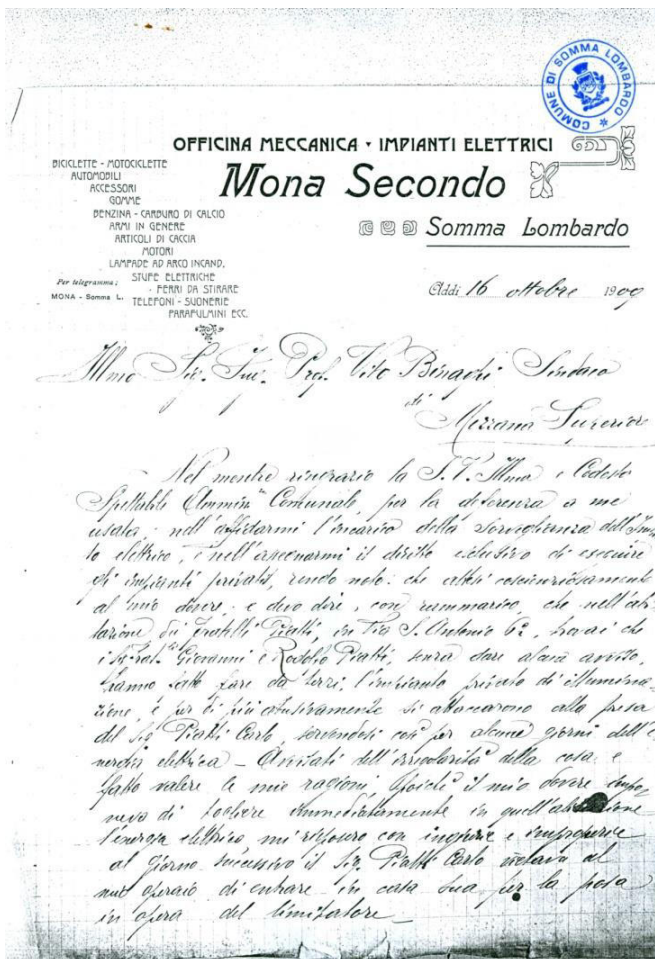 COMUNE DI SOMMA LOMBARDO
OFFICINA MECCANICA · IMPIANTI ELETTRICI
Mona Secondo
Somma Lombardo
BICICLETTE - MOTOCICLETTE
AUTOMOBILI
ACCESSORI
GOMME
BENZINA - CARBURO DI CALCIO
ARMI IN GENERE
ARTICOLI DI CACCIA
MOTORI
LAMPADE AD ARCO INCAND.
STUFE ELETTRICHE
FERRI DA STIRARE
TELEFONI - SUONERIE
PARAFULMINI ECC.
Per telegrammi:
MONA - Somma L.
Addì 16 ottobre 1909
Illmo Sig. Prof. Vito Binaghi Sindaco
di
Mezzana Superiore
Nel mentre ringrazio la S.V. Illma e Codesta
Spettabile Ammin.ne Comunale, per la deferenza a me
usata, nell'affidarmi l'incarico della sorveglianza dell'
to elettrico, e nell'assegnarmi il diritto esclusivo di eseguire
gli impianti privati, rendo noto: che attesi coscienziosamente
al mio dovere, e devo dire, con rammarico, che nell'abi-
tazione dei fratelli Piatti, in Via S. Antonio 62, trovai che
i Giovanni e Rodolfo Piatti, senza dare alcun avviso,
hanno fatto fare da terzi, l'impianto privato di illumina-
zione, e per di più abusivamente si attaccarono alla presa
del Sig. Piatti Carlo, servendosi così per alcuni giorni dell'e
nergia elettrica - Avvisati dell'irregolarità della cosa e
fatto valere le mie ragioni, poichè il mio dovere impo
neva di togliere immediatamente in quell'abitazione
l'energia elettrica mi risposero con ingiurie e improperie
al giorno successivo il Sig. Piatti Carlo vietava al
mio operaio di entrare in casa sua per la posa
in opera del limitatore